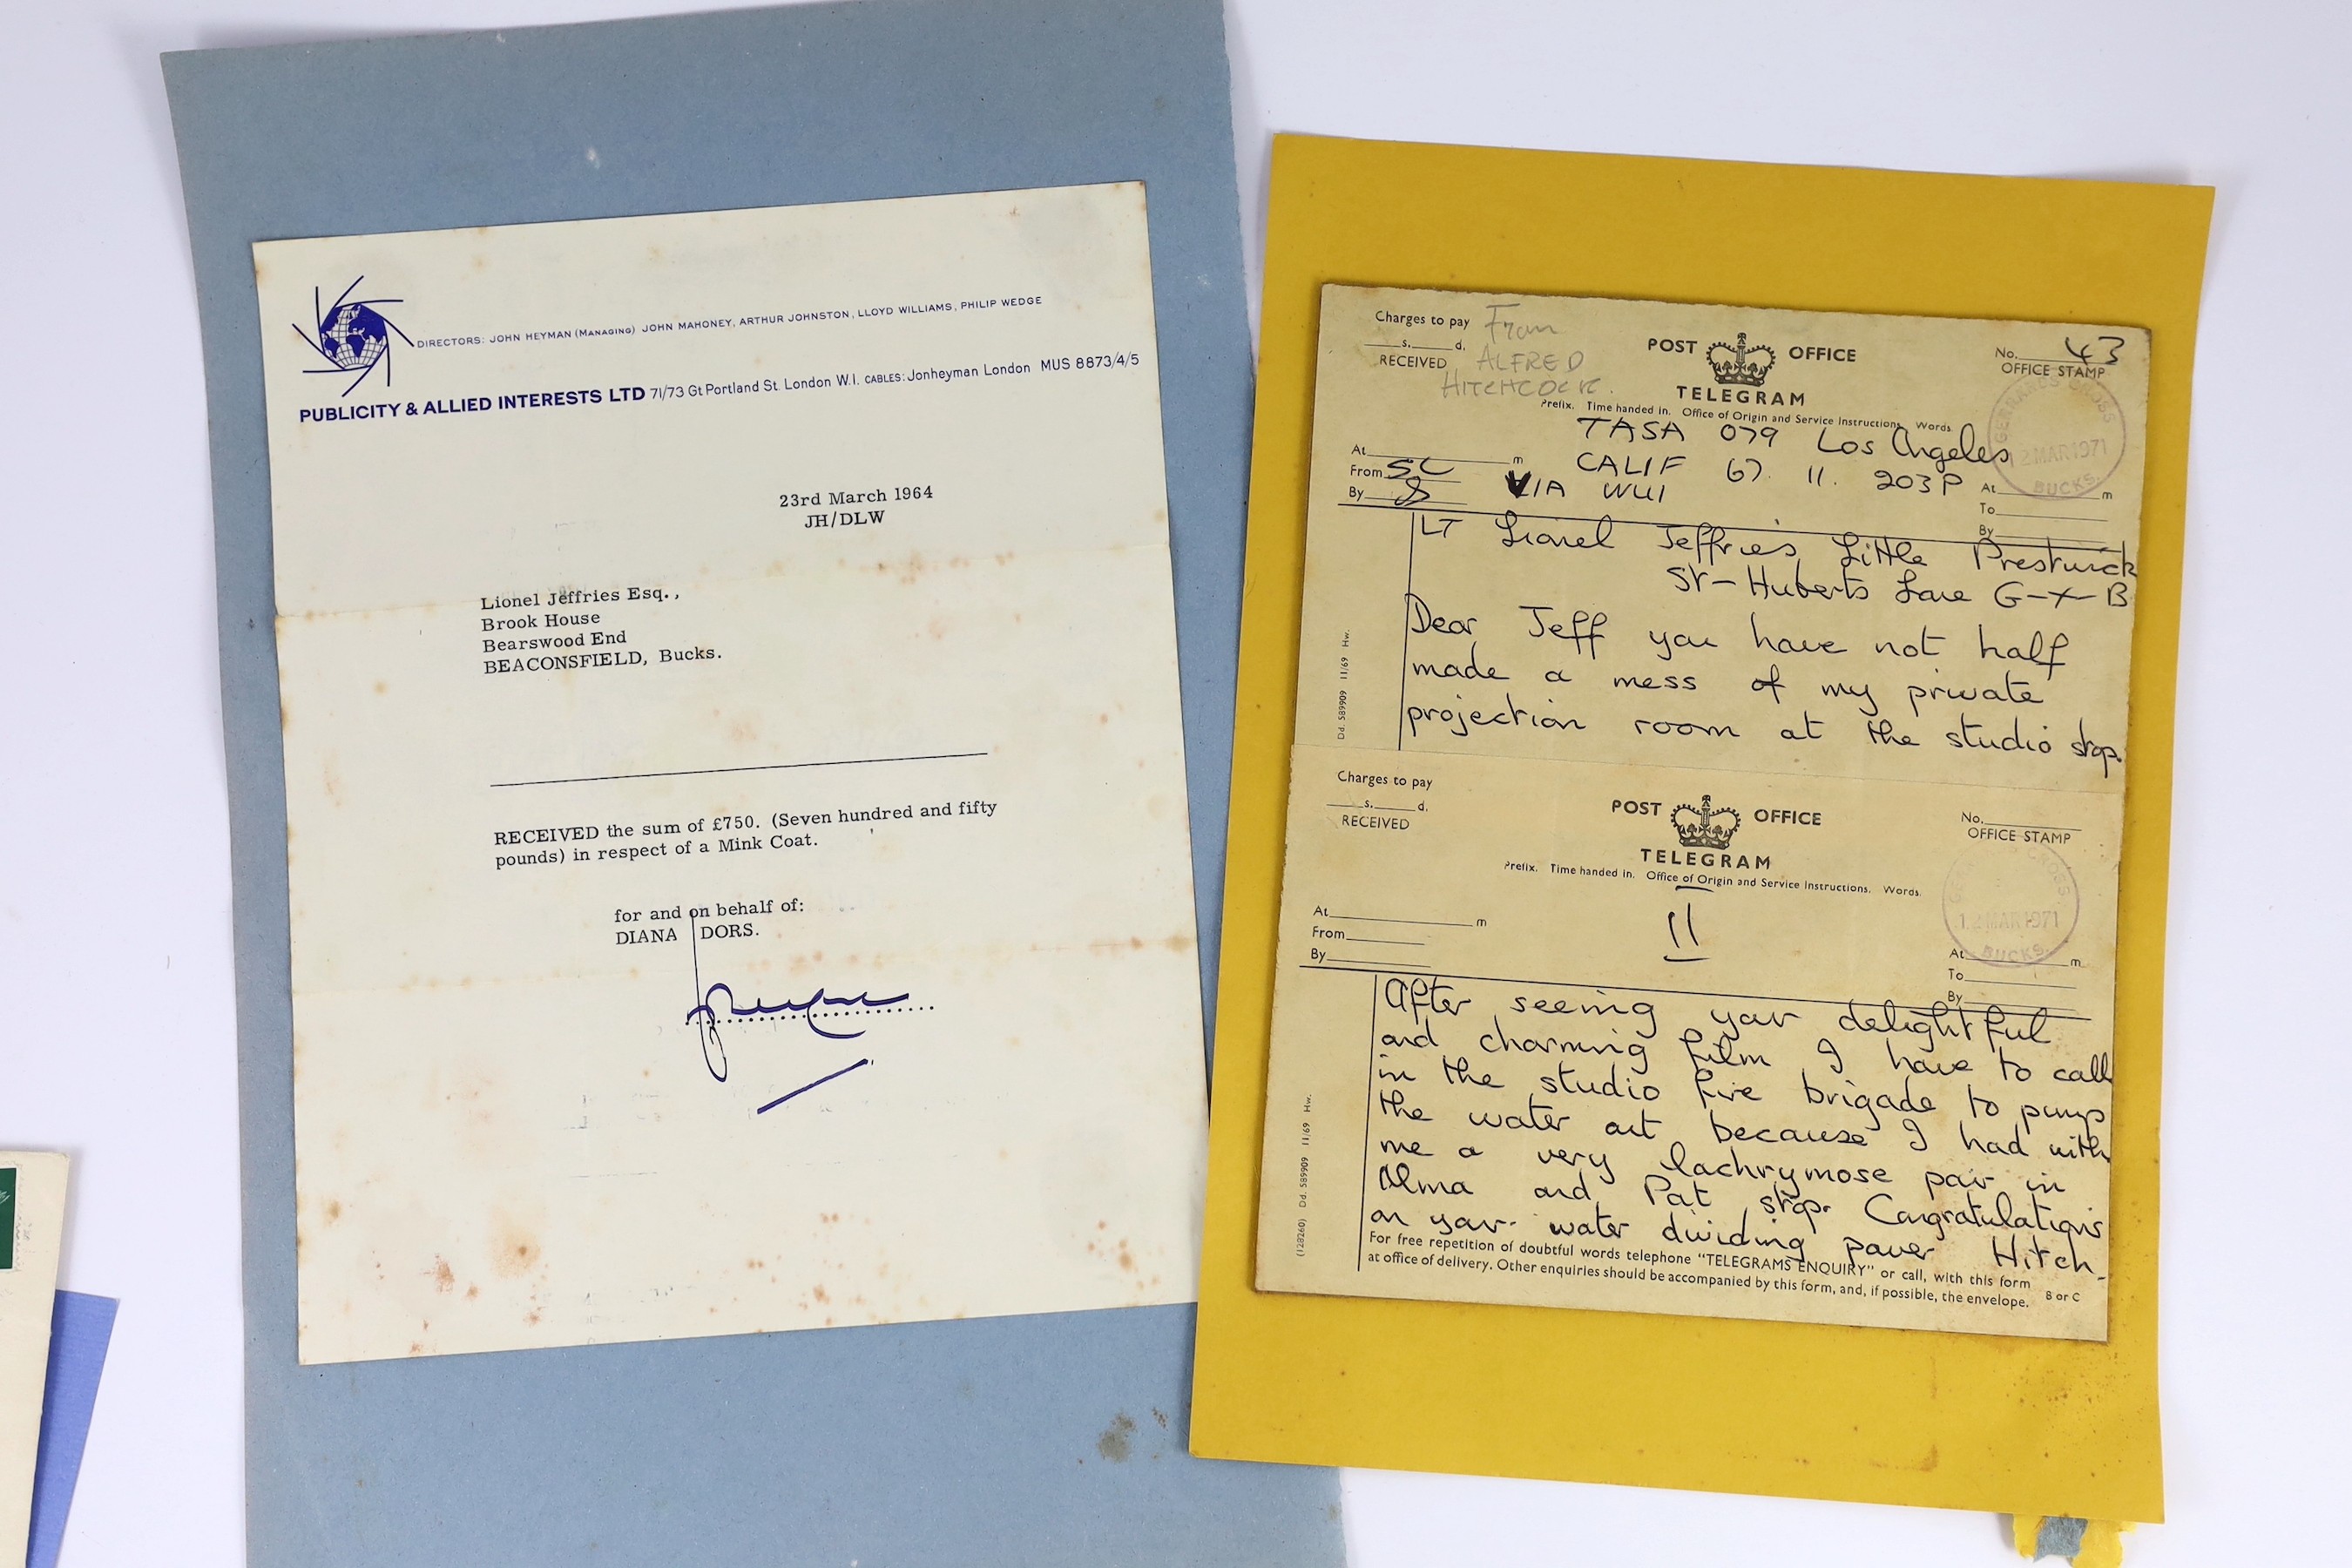 DIRECTORS: JOHN HEYMAN (MANAGING) JOHN MAHONEY, ARTHUR JOHNSTON, LLOYD WILLIAMS, PHILIP WEDGE
PUBLICITY & ALLIED INTERESTS LTD 71/73 Gt Portland St. London W.1. CABLES: Jonheyman London MUS 8873/4/5
23rd March 1964
JH/DLW
Lionel Jeffries Esq.,
Brook House
Bearswood End
BEACONSFIELD, Bucks.
RECEIVED the sum of £750. (Seven hundred and fifty
pounds) in respect of a Mink Coat.
for and on behalf of:
DIANA DORS.
Charges to pay
s. d.
RECEIVED
From
ALFRED
HITCHCOCK.
POST OFFICE
TELEGRAM
No. 43
OFFICE STAMP
GERRARDS CROSS
12 MAR 1971
BUCKS.
Prefix. Time handed in. Office of Origin and Service Instructions. Words.
TASA 079 Los Angeles
At m
CALIF 67. 11. 203P
From SC
VIA WUI
By
At m
To
By
LT Lionel Jeffries Little Prestwick
St-Huberts Lane G-X-B
Dear Jeff you have not half
made a mess of my private
projection room at the studio stop.
Dd. 589909 11/69 Hw.
Charges to pay
s. d.
RECEIVED
POST OFFICE
TELEGRAM
No.
OFFICE STAMP
CROSS
12 MAR 1971
BUCKS.
Prefix. Time handed in. Office of Origin and Service Instructions. Words.
11
At m
From
By
At m
To
By
After seeing your delightful
and charming film I have to call
in the studio fire brigade to pump
the water out because I had with
me a very lachrymose pair in
Alma and Pat stop. Congratulations
on your water dividing power Hitch.
(128260) Dd. 589909 11/69 Hw.
For free repetition of doubtful words telephone "TELEGRAMS ENQUIRY" or call, with this form
at office of delivery. Other enquiries should be accompanied by this form, and, if possible, the envelope. B or C